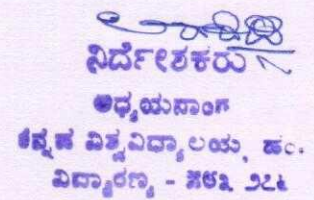 ನಿರ್ದೇಶಕರು
ಅಧ್ಯಯನಾಂಗ
ಕನ್ನಡ ವಿಶ್ವವಿದ್ಯಾಲಯ, ಹಂ.
ವಿದ್ಯಾರಣ್ಯ - ೫೮೩ ೨೭೬